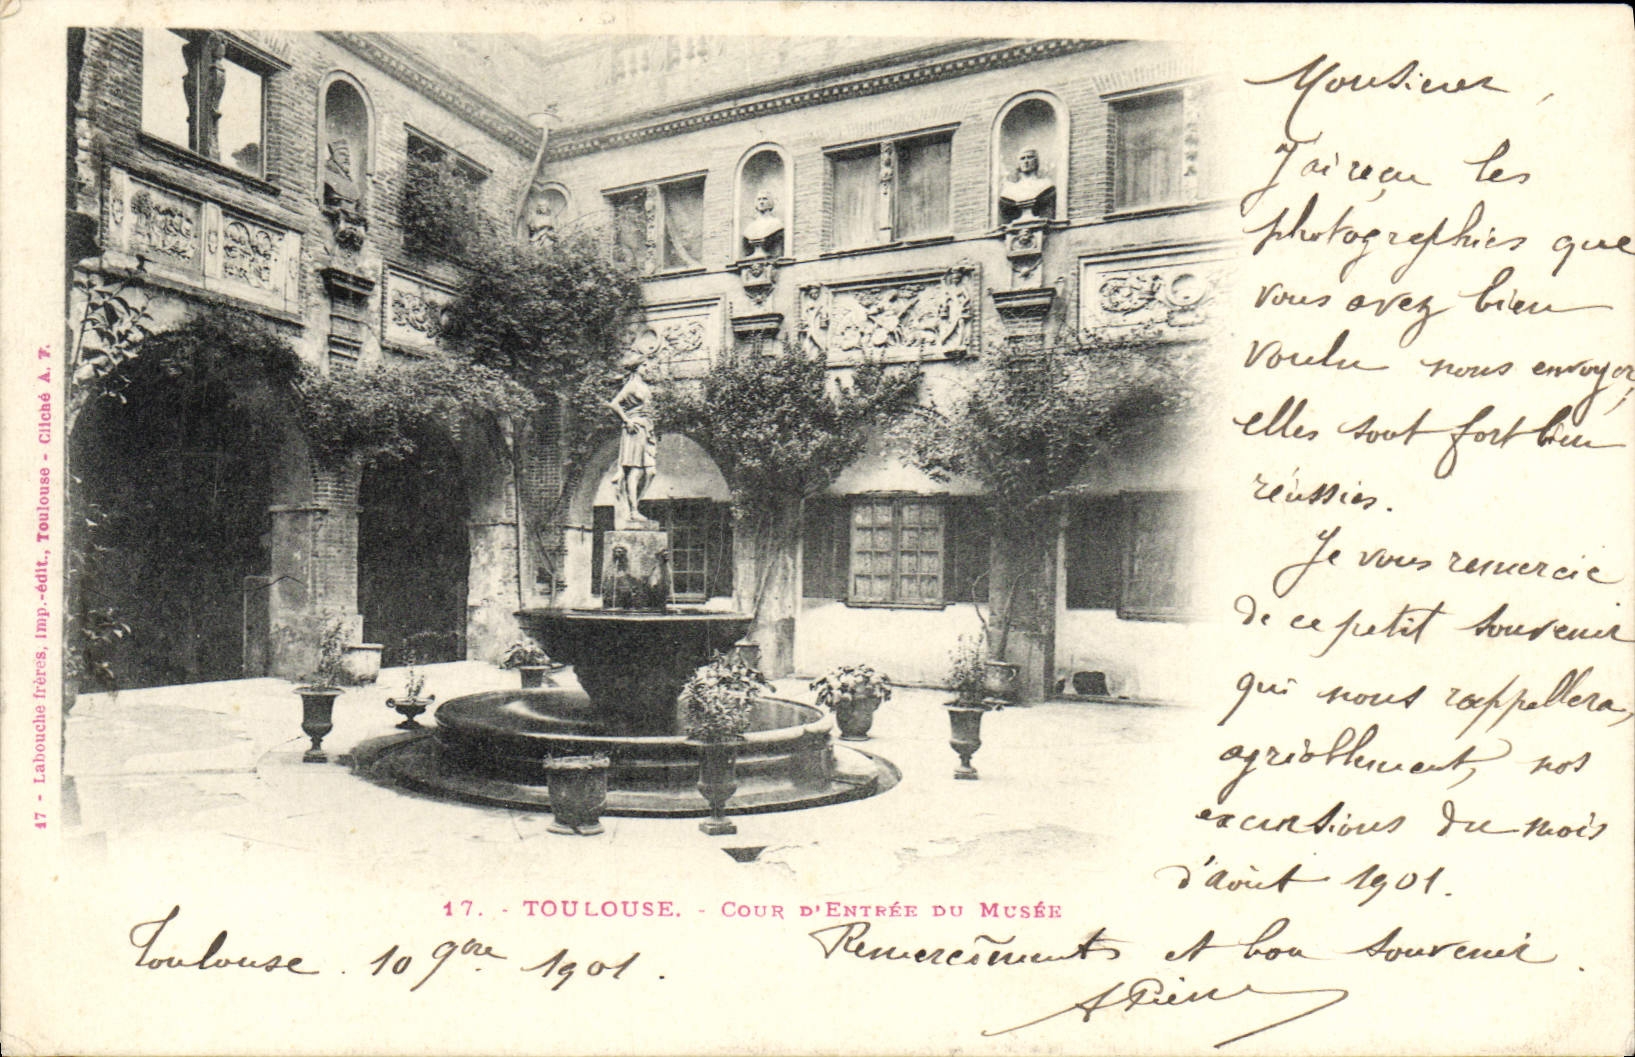 Monsieur,
J'ai reçu les
photographies que
vous avez bien
voulu nous envoyer,
elles sont fort bien
réussies.
Je vous remercie
de ce petit souvenir
qui nous rappellera,
agréablement, nos
excursions du mois
d'août 1901.
Remerciements et bon souvenir.
17. - TOULOUSE. - COUR D'ENTRÉE DU MUSÉE
Toulouse. 10 9bre 1901.
17 - Labouche frères, imp.-édit., Toulouse - Cliché A. T.